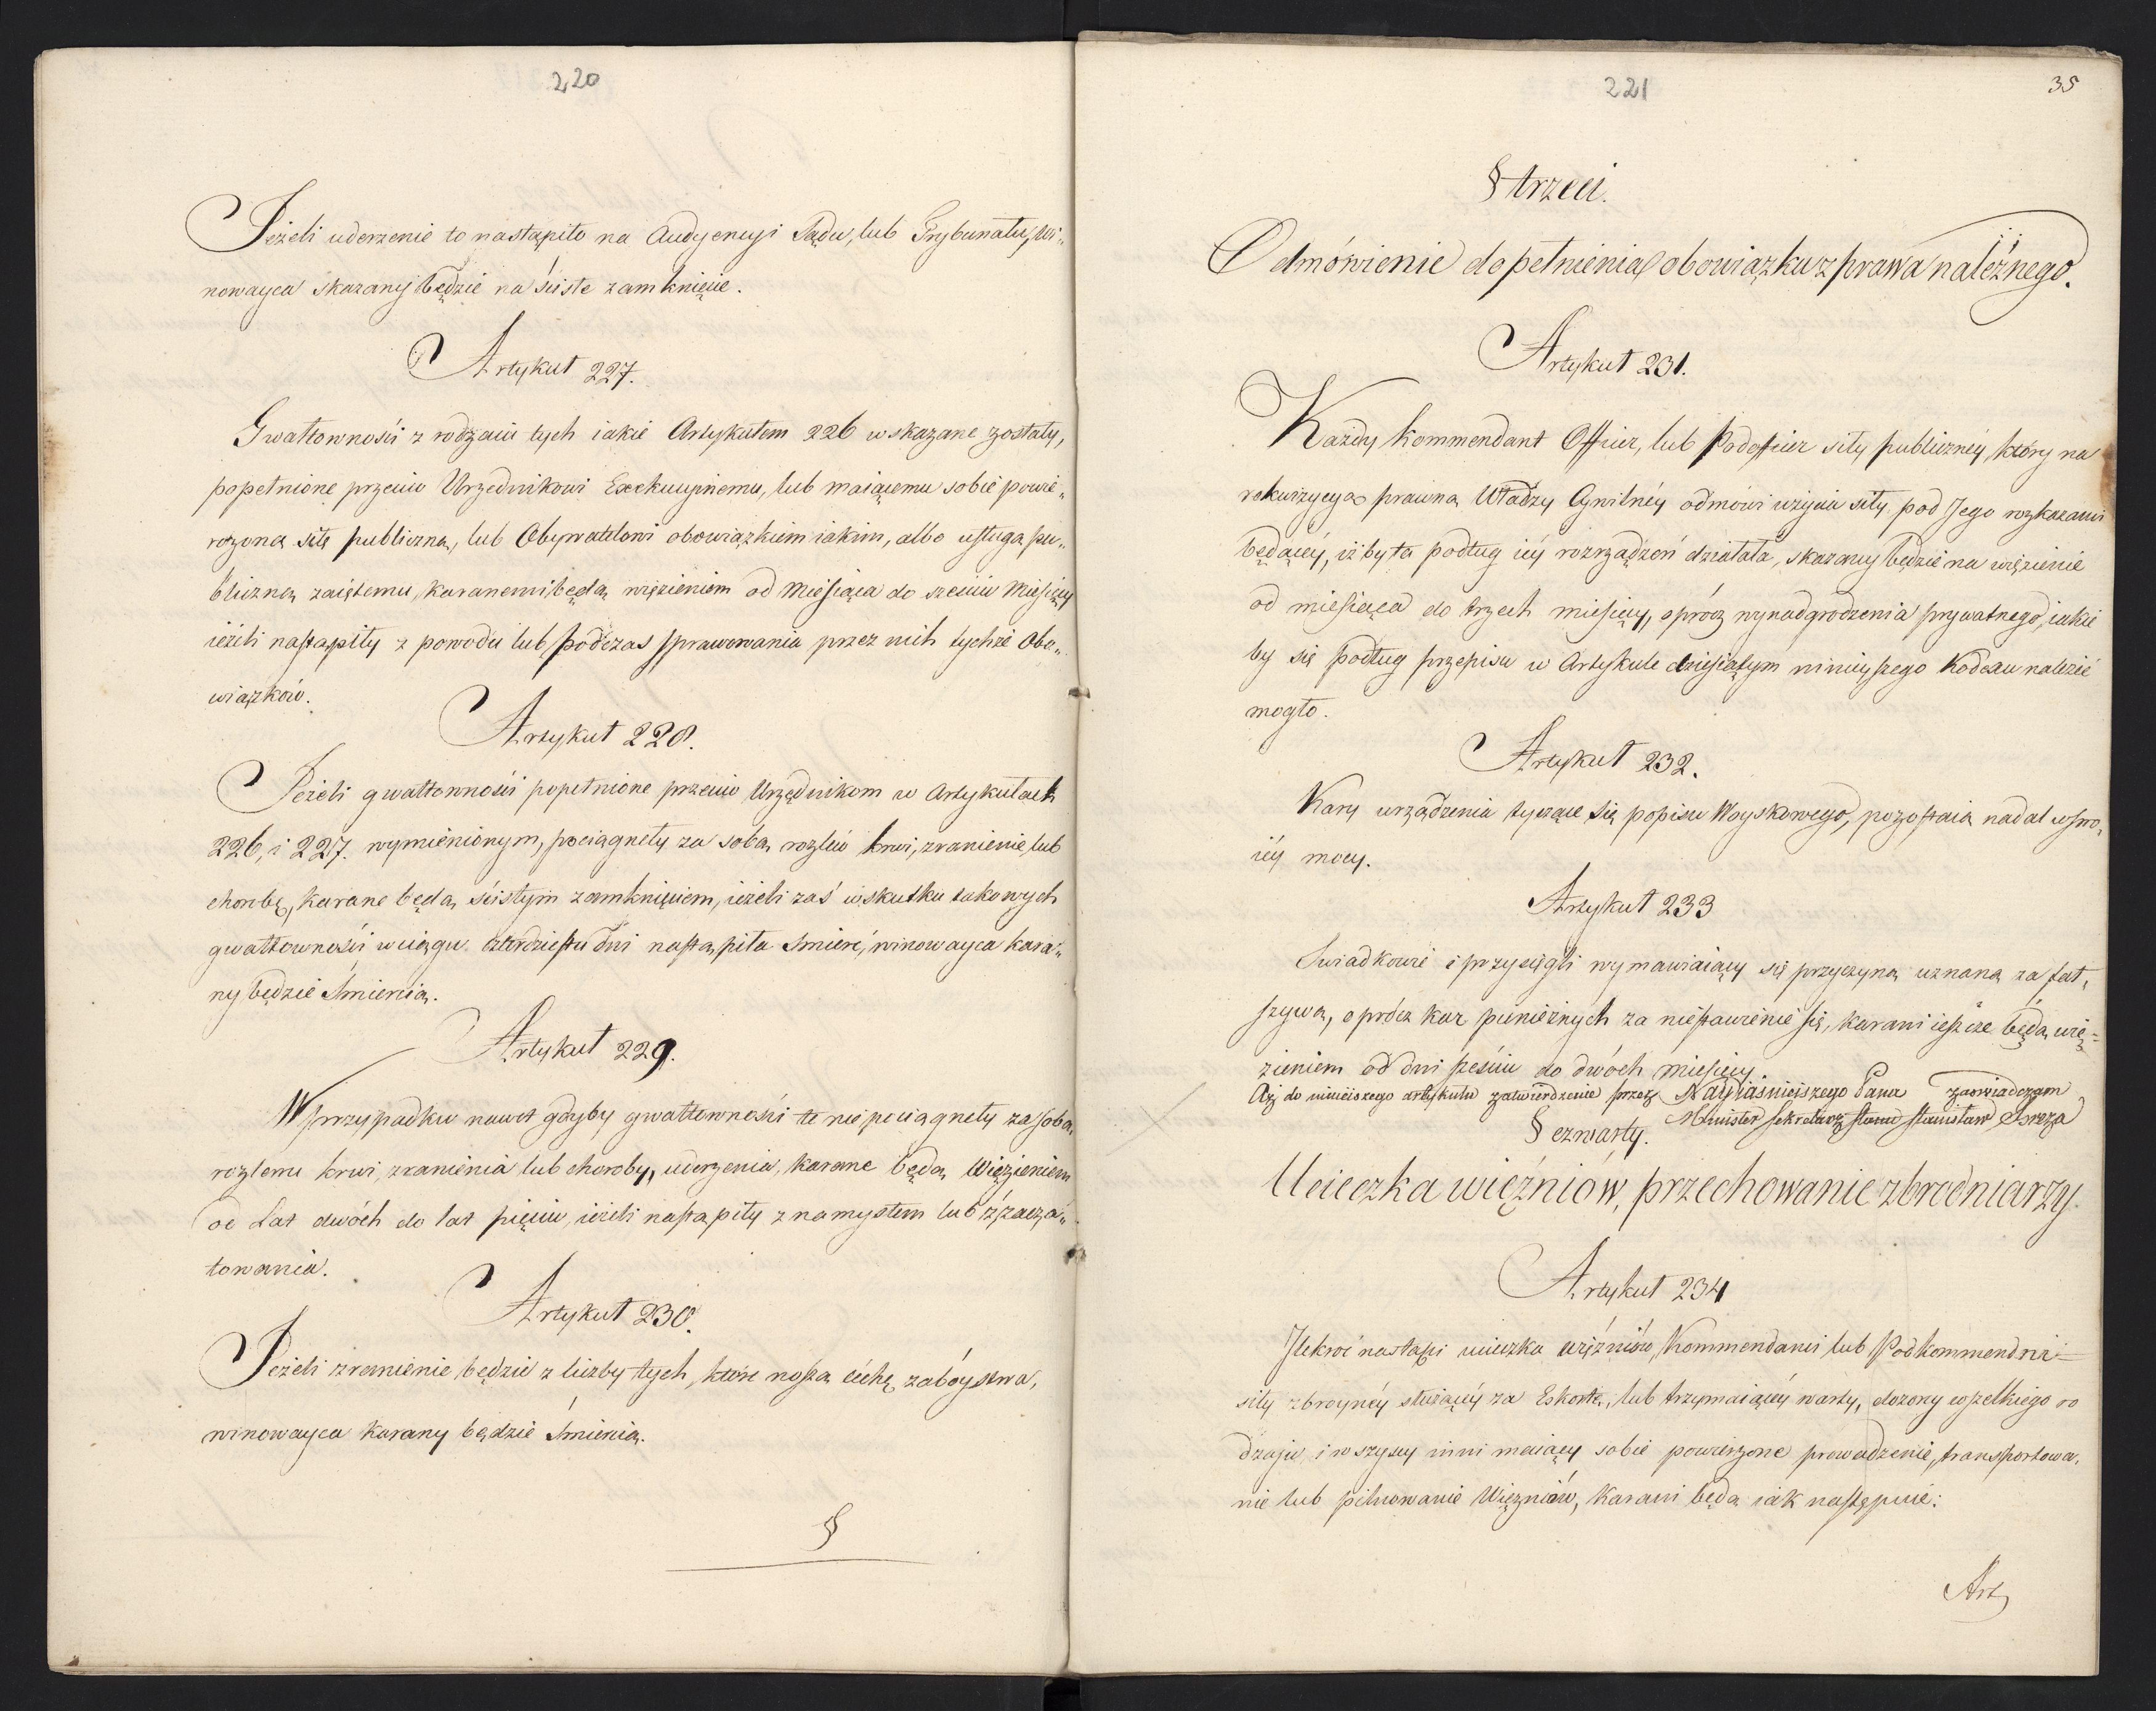 220
Jeżeli uderzenie to nastąpiło na Audyencyi Sądu, lub Trybunału, wi„
nowayca skazany będzie na ścisłe zamknięcie.
Artykuł 227.
Gwałtowności z rodzaiu tych iakie Artykułem 226 wskazane zostały,
popełnione przeciw Urzędnikowi Exekucyinemu, lub maiącemu sobie powie„
rzoną siłę publiczną, lub Obywatelowi obowiązkiem iakim, albo usługą pu„
bliczną zaiętemu, karanemi będą więzieniem od Miesiąca do sześciu Miesięcy
ieżeli nastąpiły z powodu lub podczas sprawowania przez nich tychże Obo„
wiązków.
Artykuł 228.
Jeżeli gwałtowności popełnione przeciw Urzędnikom w Artykułach
226, i 227. wymienionym, pociągnęły za sobą rozlew krwi, zranienie, lub
chorobę, karane będą ścisłym zamknięciem, ieżeli zaś wskutku takowych
gwałtowności w ciągu czterdziestu dni nastąpiła śmierć, winowayca kara„
ny będzie śmiercią.
Artykuł 229.
W przypadku nawet gdyby gwałtowności te nie pociągnęły za sobą
rozlewu krwi, zranienia lub choroby, uderzenia, karane będą Więzieniem
od Lat dwóch do lat pięciu, ieżeli nastąpiły z namysłem lub z zacza„
towania.
Artykuł 230.
Jeżeli zranienie będzie z liczby tych, które noszą cechę zabóystwa,
winowayca karany będzie śmiercią.
§
221
35
§ trzeci.
Odmówienie dopełnienia obowiązku z prawa należnego.
Artykuł 231.
Każdy Kommendant Officer, lub Podofficer siły publicznéy, który na
rekwizycyą prawną Władzy Cywilnéy odmówi użycia siły pod Jego rozkazami
będącéy, iżby ta podług iéy rozrządzeń działała, skazany będzie na więzienie
od miesiąca do trzech miesięcy, oprócz wynadgrodzenia prywatnego, iakie
by się podług przepisu w Artykule dziesiątym ninieyszego Kodexu należeć
mogło.
Artykuł 232.
Kary urządzenia tyczące się popisu Woyskowego, pozostaią nadal w swo„
iéy mocy.
Artykuł 233
Swiadkowie i przysięgli wymawiaiący się przyczyną uznaną za fał„
szywą, oprócz kar pieniężnych za niestawienie się, karani ieszcze będą wię=
zieniem od dni sześciu do dwóch miesięcy.
Aż do ninieiszego artykułu zatwierdzenie przez Nayiaśnieiszego Pana zaświadczam
Minister Sekretarz stanu Stanisław Breza
§ czwarty.
Ucieczka więźniów, przechowanie zbrodniarzy.
Artykuł 234
Ilekroć nastąpi ucieczka więźniów, Kommendanci lub Podkommendni
siły zbroynéy służącéy za Eskortę, lub trzymaiącéy warty, dozorcy wszelkiego ro
dzaju, i wszyscy inni maiący sobie powierzone prowadzenie, transportowa„
nie lub pilnowanie Więzniów, karani będą iak następuie:
Art